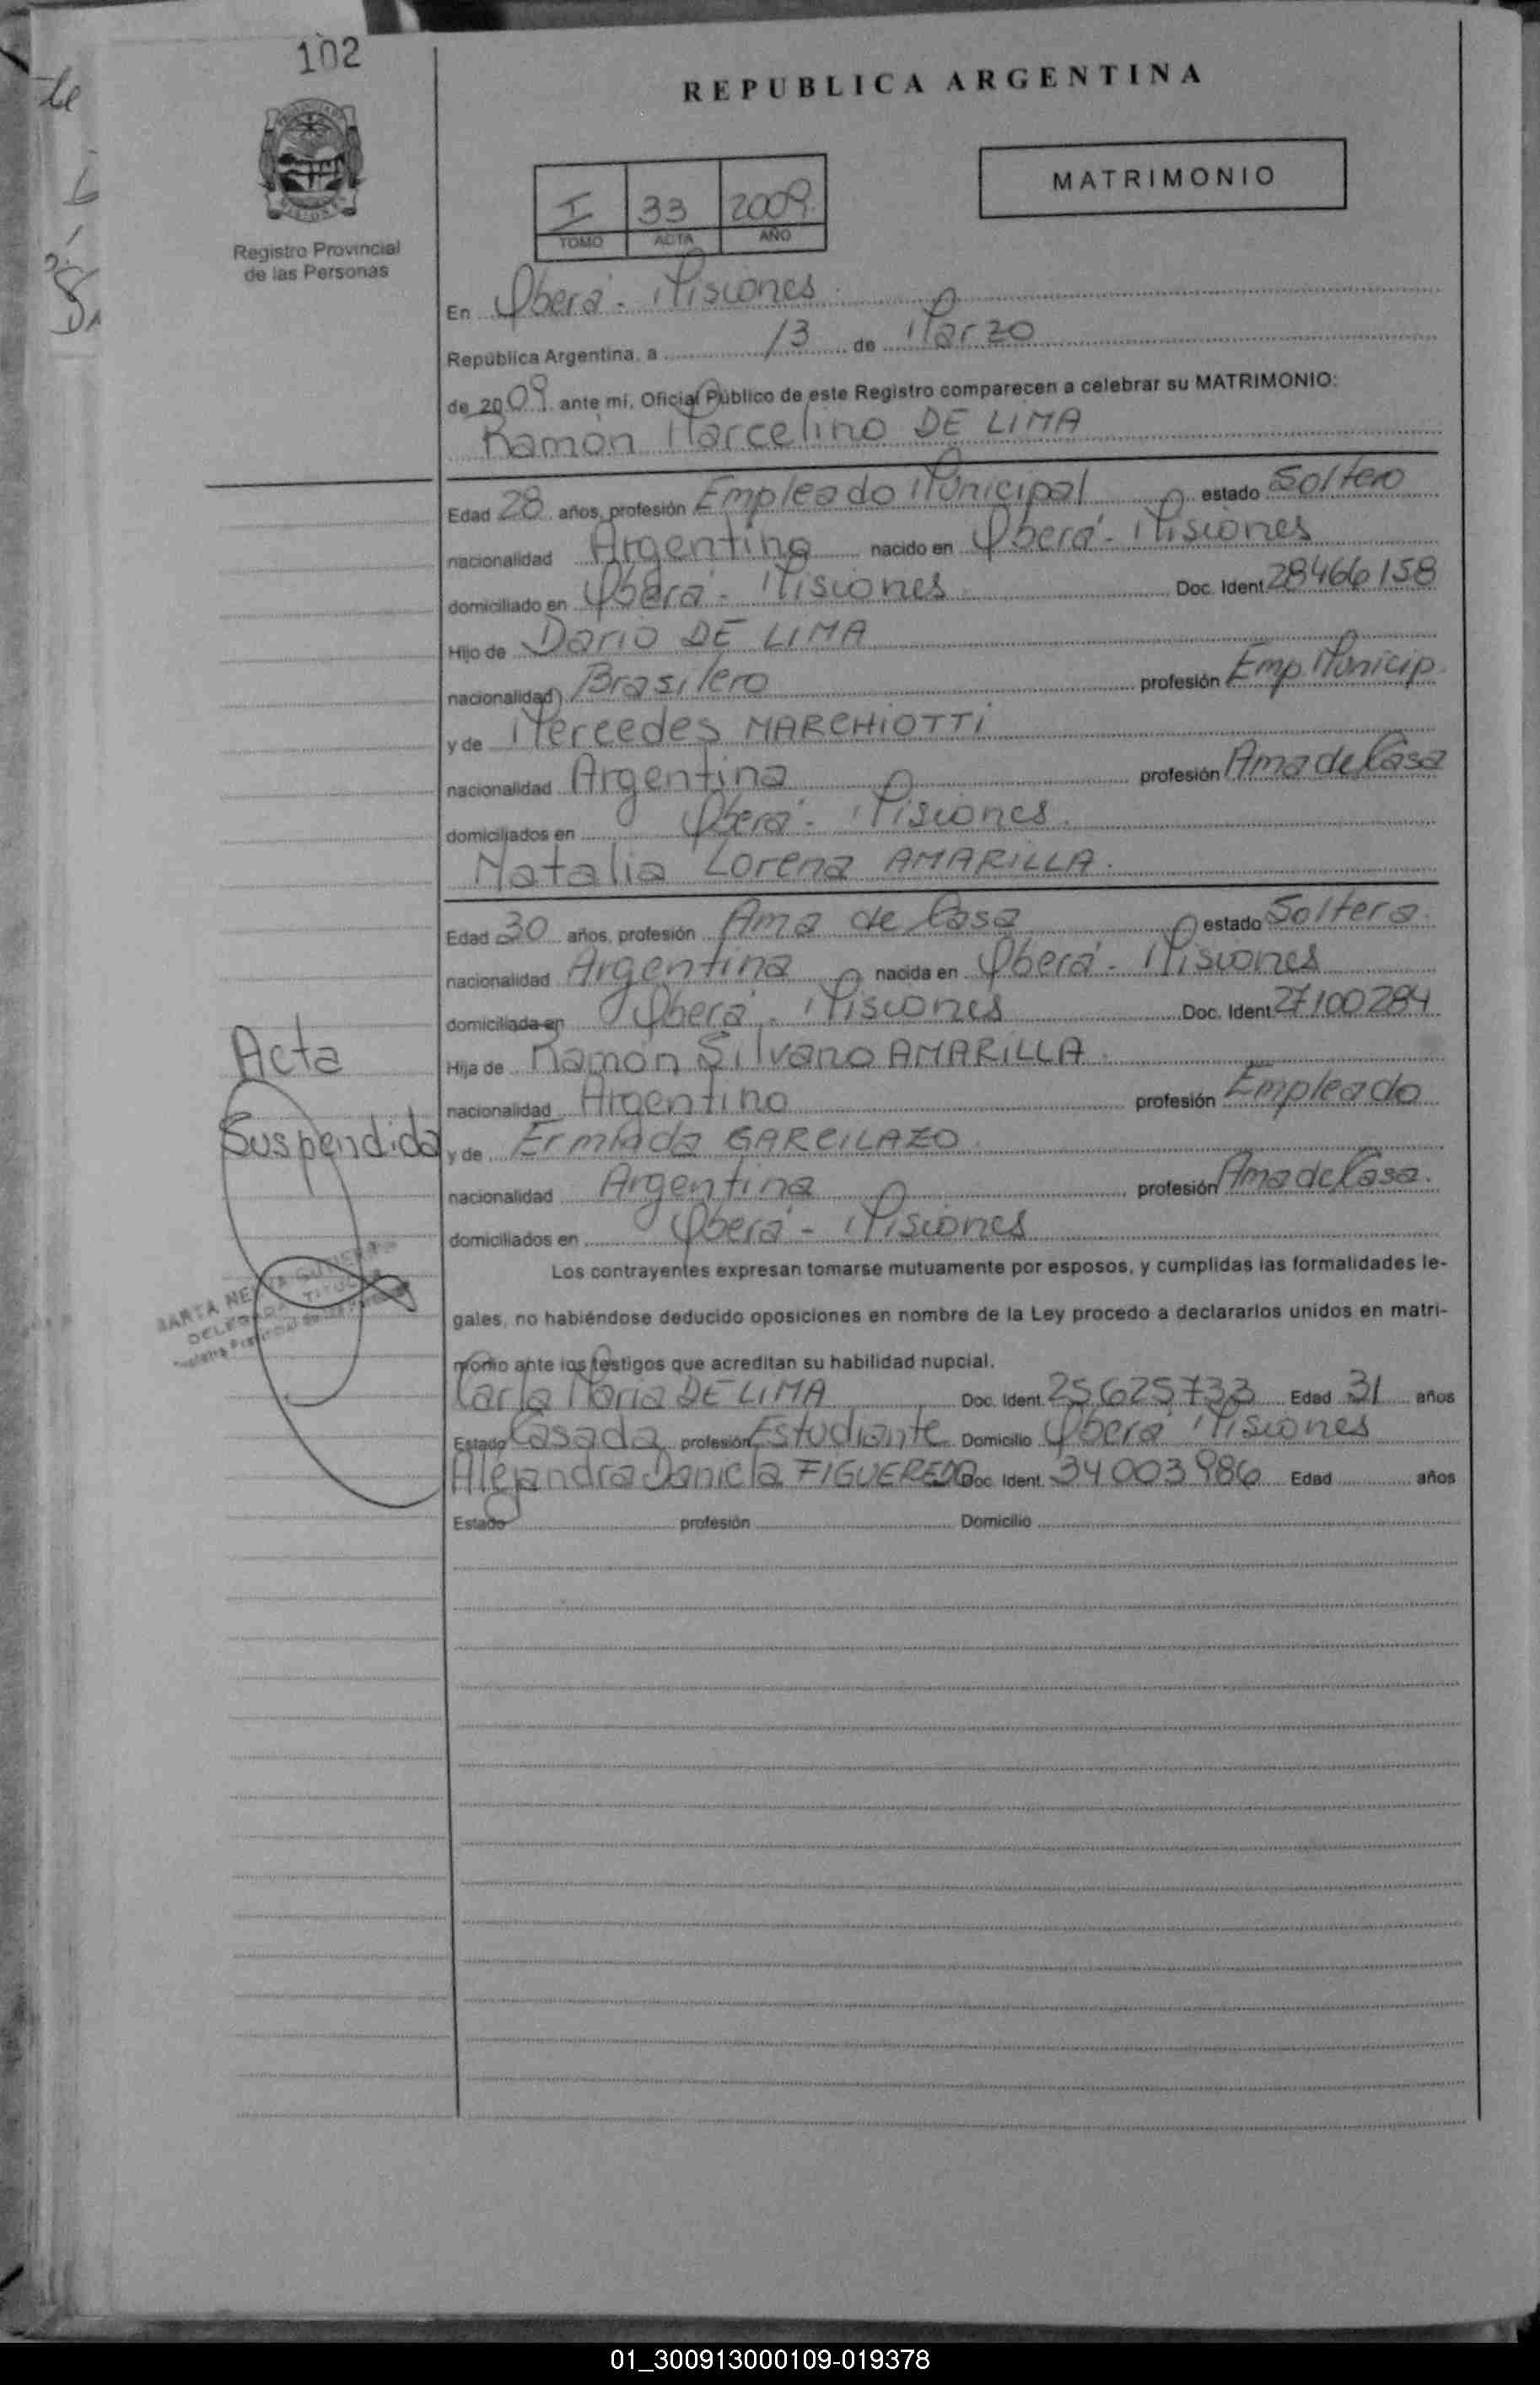 102
REPUBLICA ARGENTINA
MATRIMONIO
I 33 2009
TOMO ACTA AÑO
Registro Provincial
de las Personas
En Oberá - Misiones
República Argentina, a 13 de Marzo
de 2009 ante mi, Oficial Público de este Registro comparecen a celebrar su MATRIMONIO:
Ramón Marcelino DE LIMA
Edad 28 años, profesión Empleado Municipal estado Soltero
nacionalidad Argentina nacido en Oberá - Misiones
domiciliado en Oberá - Misiones Doc. Ident. 28466158
Hijo de Dario DE LIMA
nacionalidad Brasilero profesión Emp Municip.
y de Mercedes MARCHIOTTI
nacionalidad Argentina profesión Ama de Casa
domiciliados en Oberá - Misiones.
Natalia Lorena AMARILLA.
Edad 30 años, profesión Ama de Casa estado Soltera.
nacionalidad Argentina nacida en Oberá - Misiones
domiciliada en Oberá - Misiones Doc. Ident. 27100284
Hija de Ramón Silvano AMARILLA.
nacionalidad Argentino profesión Empleado
y de GARCILAZO.
nacionalidad Argentina profesión Ama de Casa.
domiciliados en Oberá - Misiones
Acta
Suspendida
MARTA
DELEGADA TITULAR
Los contrayentes expresan tomarse mutuamente por esposos, y cumplidas las formalidades le-
gales, no habiéndose deducido oposiciones en nombre de la Ley procedo a declararlos unidos en matri-
monio ante los testigos que acreditan su habilidad nupcial.
Carla Maria DE LIMA Doc. Ident. 25.625.733 Edad 31 años
Estado Casada profesión Estudiante Domicilio Oberá Misiones
Alejandra Daniela FIGUEREDO Doc. Ident. 34.003.986 Edad años
Estado profesión Domicilio
01_300913000109-019378